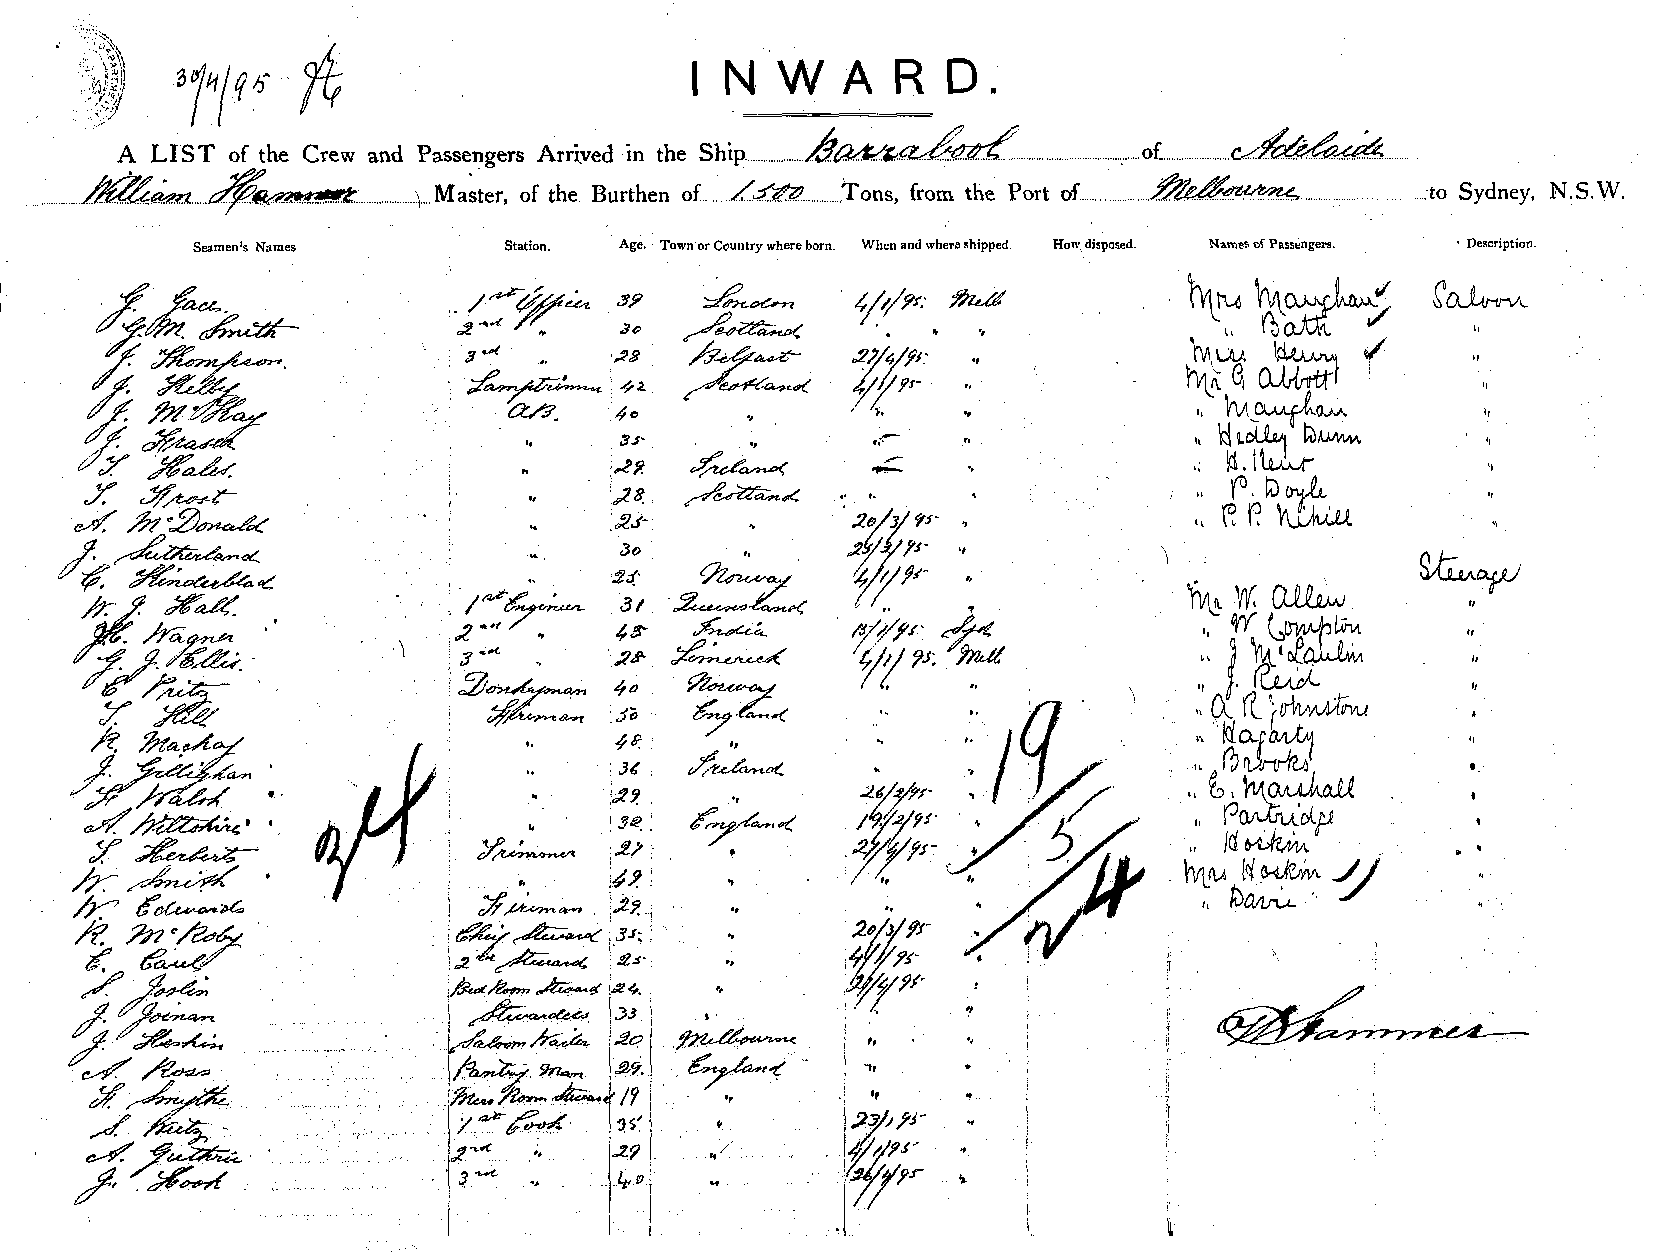 30/4/95
INWARD.
A LIST of the Crew and Passengers Arrived in the Ship Barrabool of Adelaide
William Hammer Master, of the Burthen of 1.500 Tons, from the Port of Melbourne to Sydney, N.S.W.
Seamen's Names Station. Age. Town or Country where born. When and where shipped. How disposed. Names of Passengers. Description.
G. Gace 1st Officer 39 London 4/1/95. Melb Mrs Maughan Saloon
G. M. Smith 2nd " 30 Scotland " " " " Bath "
J. Thompson. 3rd " 28 Belfast 27/4/95 " Miss Henry "
J. Kelly Lamptrimmer 42 Scotland 4/1/95 " Mr G Abbott "
J. McKay AB. 40 " " " " Maughan "
J. Fraser " 35 " " " " Hedley Dunn "
T. Hales. " 29 Ireland " " H. "
T. Frost " 28 Scotland " " " " P. Doyle "
A. McDonald " 25 " 20/3/95 " " P. P. Nihill "
J. Sutherland " 30 " 25/3/95 "
C. Kinderblad " 25 Norway 4/1/95 " Steerage
W. J. Hall. 1st Engineer 31 Queensland " " Mr W. Allen "
Wagner 2nd " 45 India 15/1/95 Syd " W Compton "
G. J. Ellis. 3rd " 28 Limerick 4/1/95. Melb " J McLaulin "
C Fritz Donkeyman 40 Norway " " " J. Reid "
T. Hill Fireman 50 England " " " A R Johnstone "
R. Mackay " 48 " " " " Hagarty "
J. Gillighan " 36 Ireland " " " Brooks "
F. Walsh " 29 " 26/2/95 " " E. Marshall "
A. Wiltshire " 32 England 19/2/95 " " Partridge "
T. Herberts Trimmer 27 " 27/4/95 " " Hoskin "
W. Smith " 49 " " " Mrs Hoskin "
W. Edwards Fireman 29 " " " " Davie "
R. McRoby Chief Steward 35 " 20/3/95 "
C. Caul 2nd Steward 25 " 4/1/95 "
S. Joslin Bed Room Steward 24 " 27/4/95 "
J. Joinan Stewardess 33 " "
J. Heskin Saloon Waiter 20 Melbourne " "
A. Ross Pantry Man 29 England " "
F. Smythe Mess Room Steward 19 " " "
S. Kutz 1st Cook 35 " 23/1/95 "
A. Guthrie 2nd " 29 " 4/1/95 "
J. Hook 3rd " 40 " 26/4/95 "
24
19
5
24
W Hammer